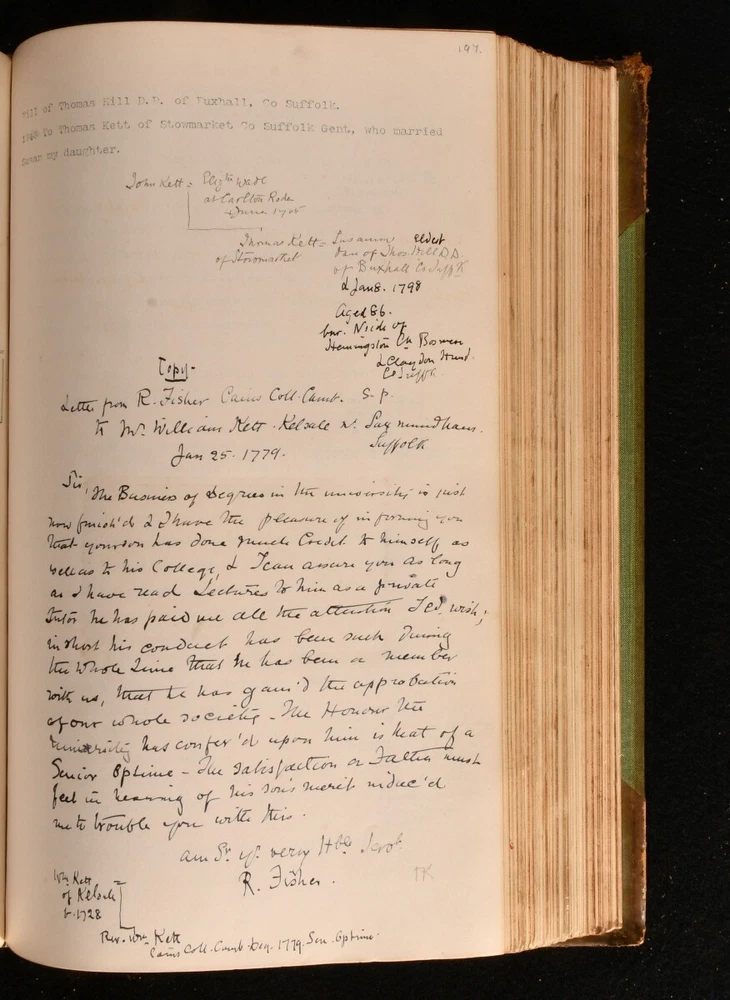 197.
Will of Thomas Hill D.D. of Buxhall, Co Suffolk.
To Thomas Kett of Stowmarket Co Suffolk Gent, who married
Susan my daughter.
John Kett = Elizth Wade
at Carlton Rode
June 1705
Thomas Kett = Susanna eldest
of Stowmarket dau of Thos. Hill D.D.
of Buxhall Co Suffk
d Jan 8. 1798
Aged 86.
bur. N side of
Hemingston Ch Bosmere
& Claydon Hund.
Co Suffk.
Copy-
Letter from R. Fisher Caius Coll. Camb. S. p.
to Mr. William Kett. Kelsale nr. Saxmundham.
Suffolk
Jan 25. 1779.
Sir, The Business of Degrees in the university is just
now finish'd & I have the pleasure of informing you
that your son has done much Credit to himself as
well as to his College, & I can assure you as long
as I have read Lectures to him as a private
Tutor he has paid me all the attention I cd. wish;
in short his conduct has been such during
the whole Time that he has been a member
with us, that he has gain'd the approbation
of our whole society - The Honour the
University has confer'd upon him is that of a
Senior Optime - The satisfaction a Father must
feel in hearing of his son's merit induc'd
me to trouble you with this.
am Sr. yr. very Hble Servt.
R. Fisher.
Wm. Kett =
of Kelsale
b. 1728
Rev. Wm. Kett
Caius Coll. Camb. Deg. 1779. Sen. Optime.